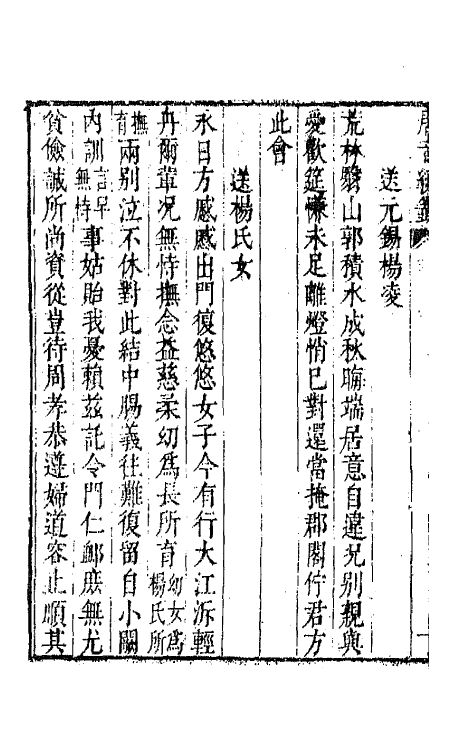 送元錫楊凌
荒林翳山郭積水成秋晦端居意自違況別親與
愛歡筵慊未足離燈悄已對還當掩郡閣佇君方
此會
送楊氏女
永日方慼慼出門復悠悠女子今有行大江泝輕
舟爾輩況無恃撫念益慈柔幼爲長所育幼女爲楊氏所
撫育兩別泣不休對此結中腸義往難復留自小闕
內訓言早無恃事姑貽我憂賴茲託令門仁卹庶無尤
貧儉誠所尚資從豈待周孝恭遵婦道容止順其